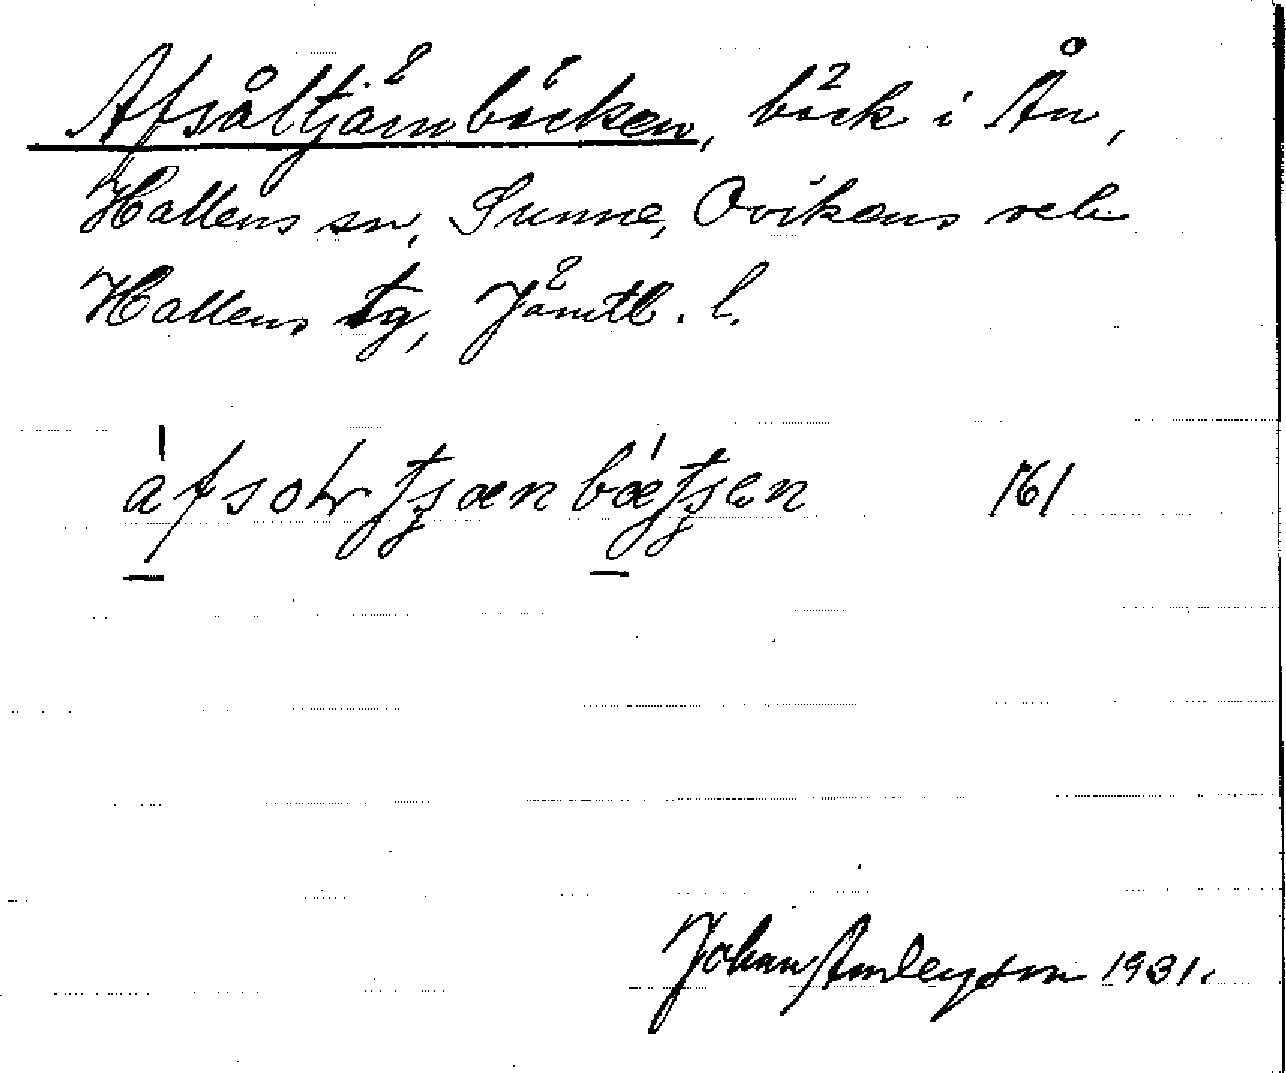 Afsåltjärnbäcken, bäck i Ån,
Hallens sn, Sunne, Ovikens och
Hallens tg, Jämtl. l.
161
Johan 1931.